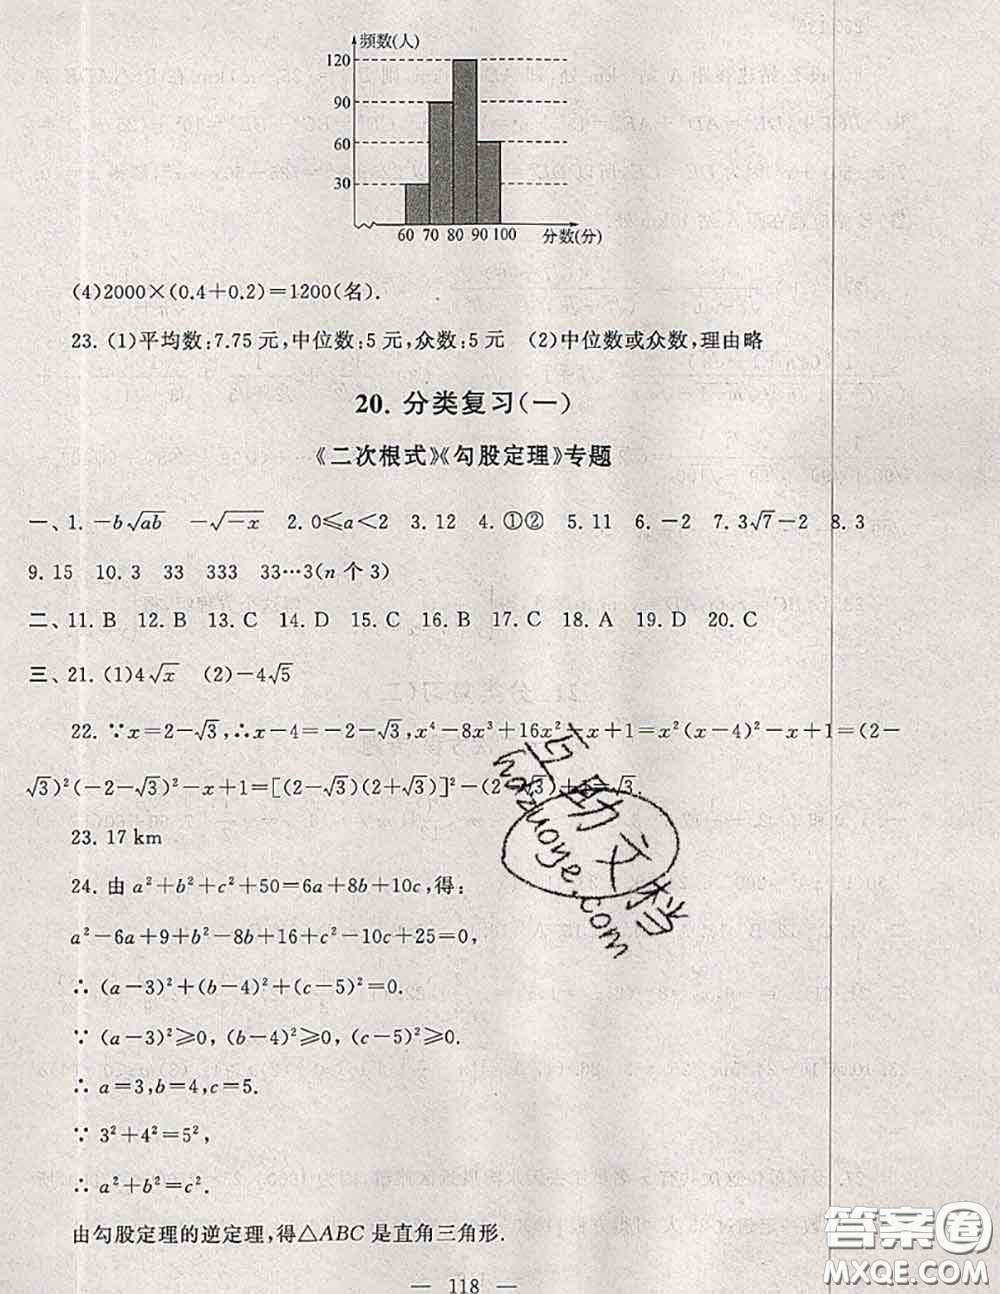 频数(人)
120
90
60
30
60 70 80 90 100 分数(分)
(4)2000×(0.4+0.2)=1200(名).
23. (1)平均数:7.75 元,中位数:5 元,众数:5 元 (2)中位数或众数,理由略
20. 分类复习(一)
《二次根式》《勾股定理》专题
一、1. −b√ab −√−x 2. 0⩽a<2 3. 12 4. ①② 5. 11 6. −2 7. 3√7−2 8. 3
9. 15 10. 3 33 333 33…3(n 个 3)
二、11. B 12. B 13. C 14. D 15. C 16. B 17. C 18. A 19. D 20. C
三、21. (1)4√x (2)−4√5
22. ∵x=2−√3,∴x−4=−2−√3,x⁴−8x³+16x²−x+1=x²(x−4)²−x+1=(2−
√3)²(−2−√3)²−x+1=[(2−√3)(2+√3)]²−(2−√3)+1=√3.
23. 17 km
24. 由 a²+b²+c²+50=6a+8b+10c,得:
a²−6a+9+b²−8b+16+c²−10c+25=0,
∴ (a−3)²+(b−4)²+(c−5)²=0.
∵ (a−3)²⩾0, (b−4)²⩾0, (c−5)²⩾0.
∴ a=3,b=4,c=5.
∵ 3²+4²=5²,
∴ a²+b²=c².
由勾股定理的逆定理,得△ABC 是直角三角形.
— 118 —
互助文档
hdzuoye.com
答案圈
MXQE.COM